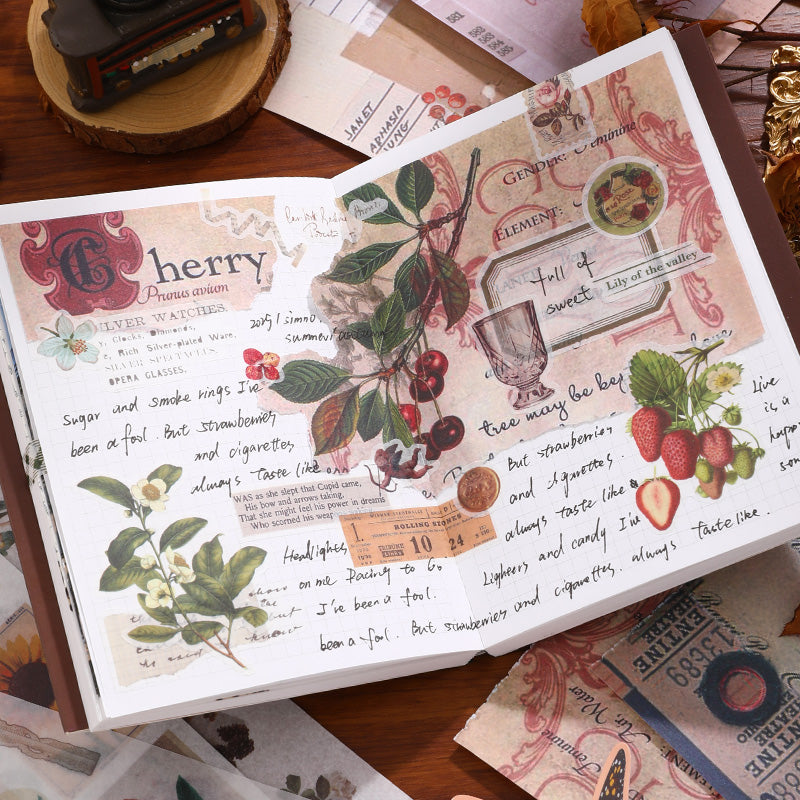 Cherry
Prunus avium
SILVER WATCHES.
Clocks, Diamonds,
Rich, Silver-plated Ware,
SILVER SPECTACLES.
OPERA GLASSES.
Sugar and smoke rings I've
been a fool. But strawberries
and cigarettes
always taste like
WAS as she slept that Cupid came,
His bow and arrows taking,
That she might feel his power in dreams
Who scorned his
1.
ROLLING STONES
TRIBUNE
10
24
Headlights
on me Racing to 60
I've been a fool.
been a fool. But strawberries and cigarettes. always taste like.
GENDER: Feminine
ELEMENT:
full of
sweet
Lily of the valley
tree may be
But strawberries
and cigarettes.
always taste like &
Ligheers and candy I've
Live
is a
JANET
ENTINE
THEATRE
13689
Feminine
Air, Water